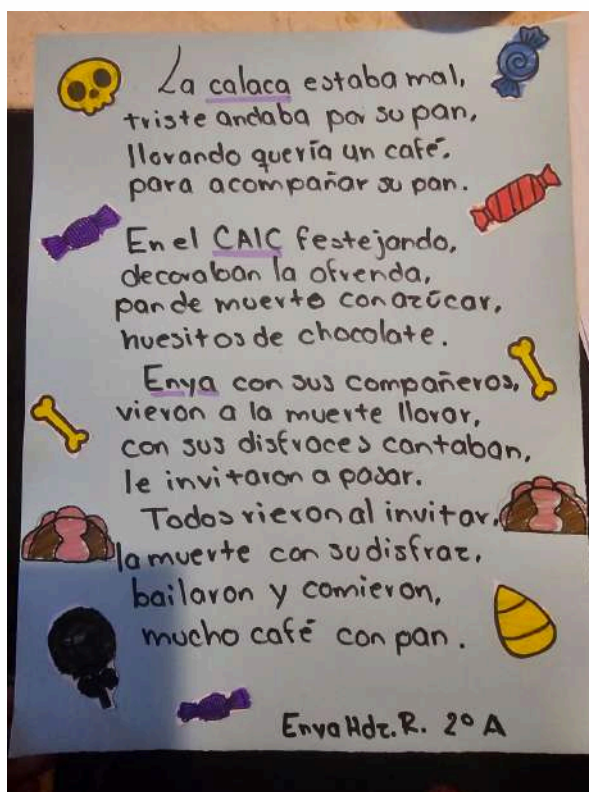 La calaca estaba mal,
triste andaba por su pan,
llorando quería un café.
para acompañar su pan.
En el CAIC festejando,
decoraban la ofrenda,
pan de muerto con azúcar,
huesitos de chocolate.
Enya con sus compañeros,
vieron a la muerte llorar,
con sus disfraces cantaban,
le invitaron a pasar.
Todos rieron al invitar,
la muerte con su disfraz,
bailaron y comieron,
mucho café con pan.
Enya Hdz. R. 2º A